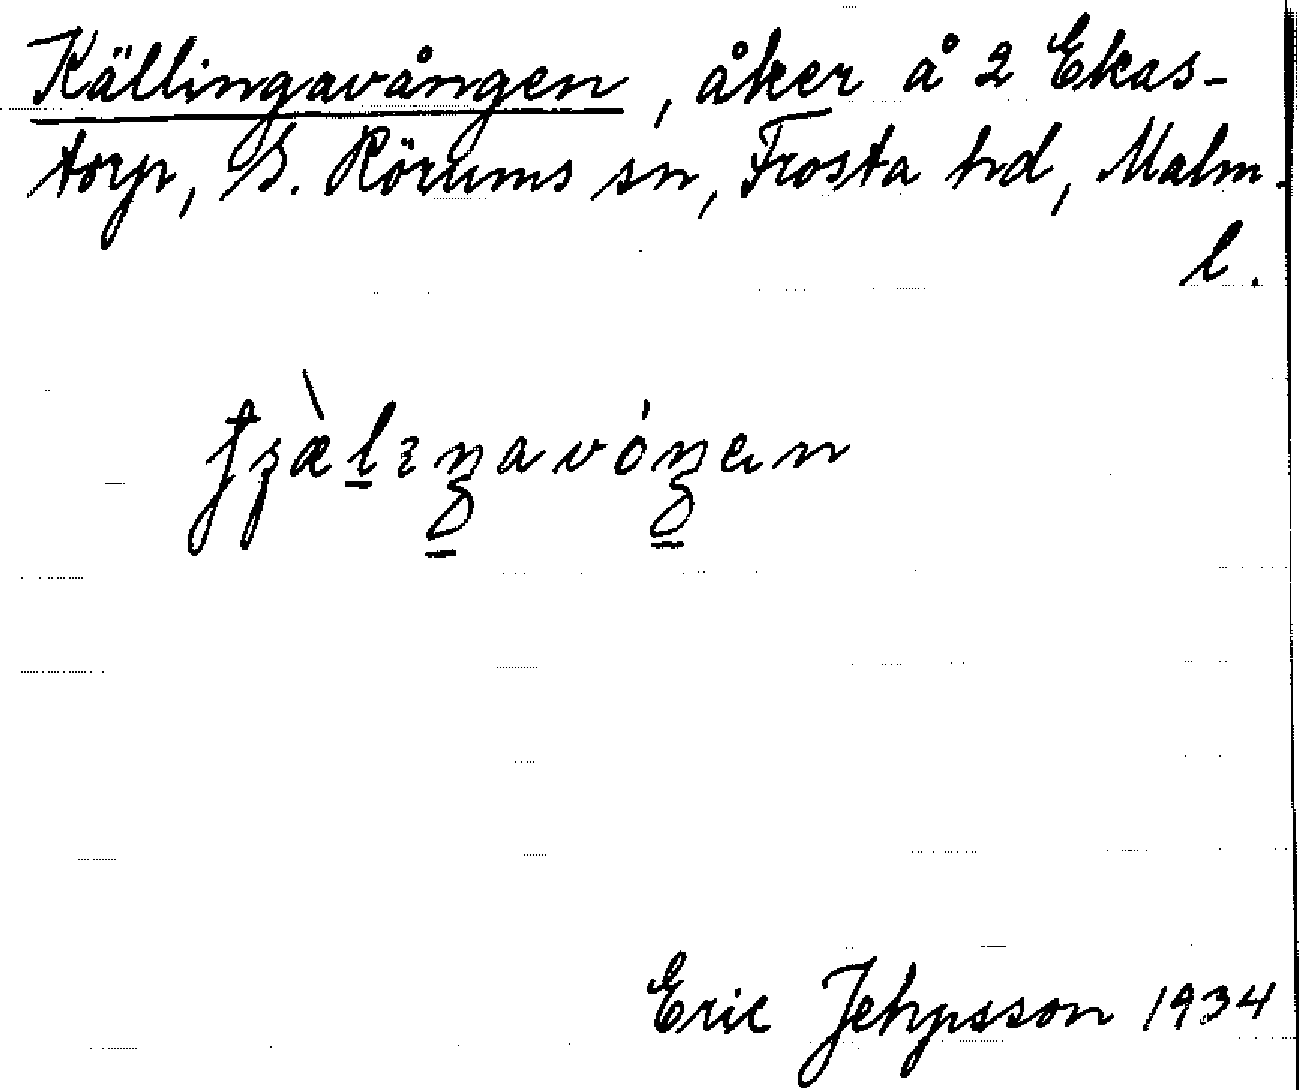 Källingavången, åker å 2 Ekas-
torp, S. Rörums sn, Frosta hd, Malm.
l.
Eric Jehpsson 1934